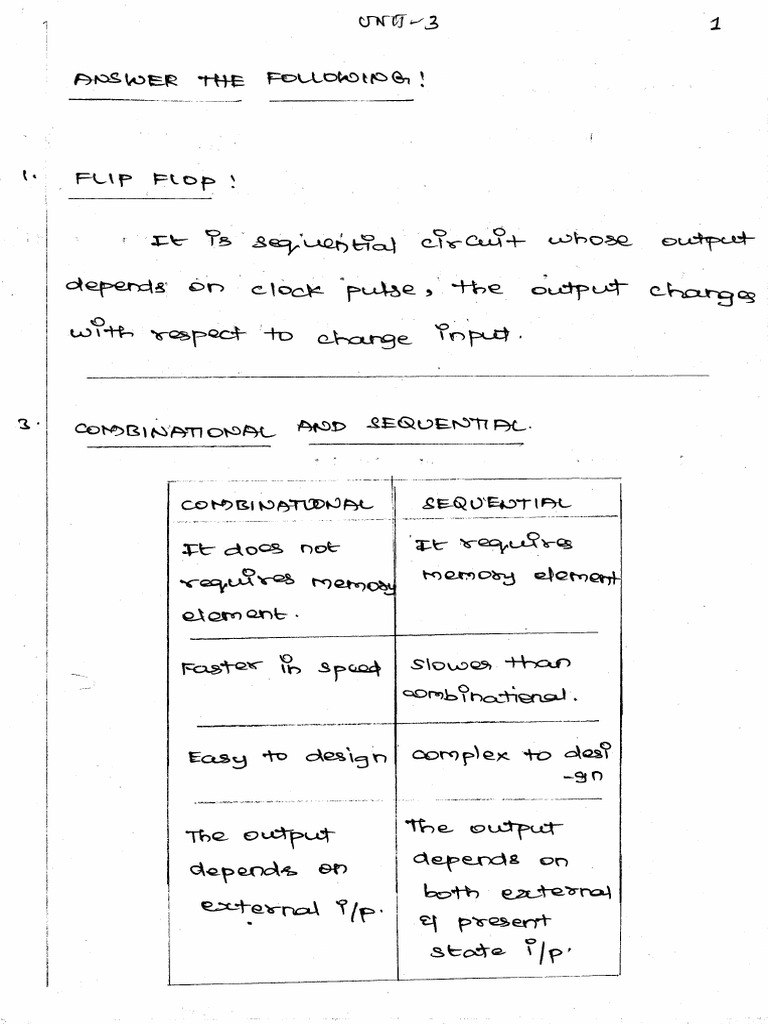 UNIT-3 1
ANSWER THE FOLLOWING!
1. FLIP FLOP!
It is sequential circuit whose output
depends on clock pulse, the output changes
with respect to change input.
3. COMBINATIONAL AND SEQUENTIAL.
COMBINATIONAL SEQUENTIAL
It does not
requires memory
element.
It requires
memory element
Faster in speed
Slower than
combinational.
Easy to design
complex to desi
-gn
The output
depends on
external i/p.
The output
depends on
both external
& present
state i/p.